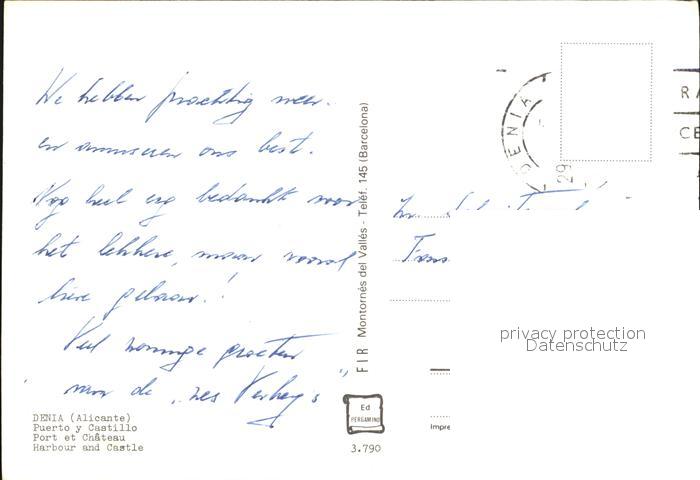 We hebben prachtig weer.
en amuseren ons best.
Nog heel erg bedankt voor
het lekkere, maar vooral
lieve gebaar!
Veel zonnige groeten
van de "zes
DENIA (Alicante)
Puerto y Castillo
Port et Château
Harbour and Castle
FIR Montornés del Vallés - Teléf. 145 (Barcelona)
Ed
PERGAMINO
3.790
DENIA
29
RA
CE
Fam
privacy protection
Datenschutz
Impre